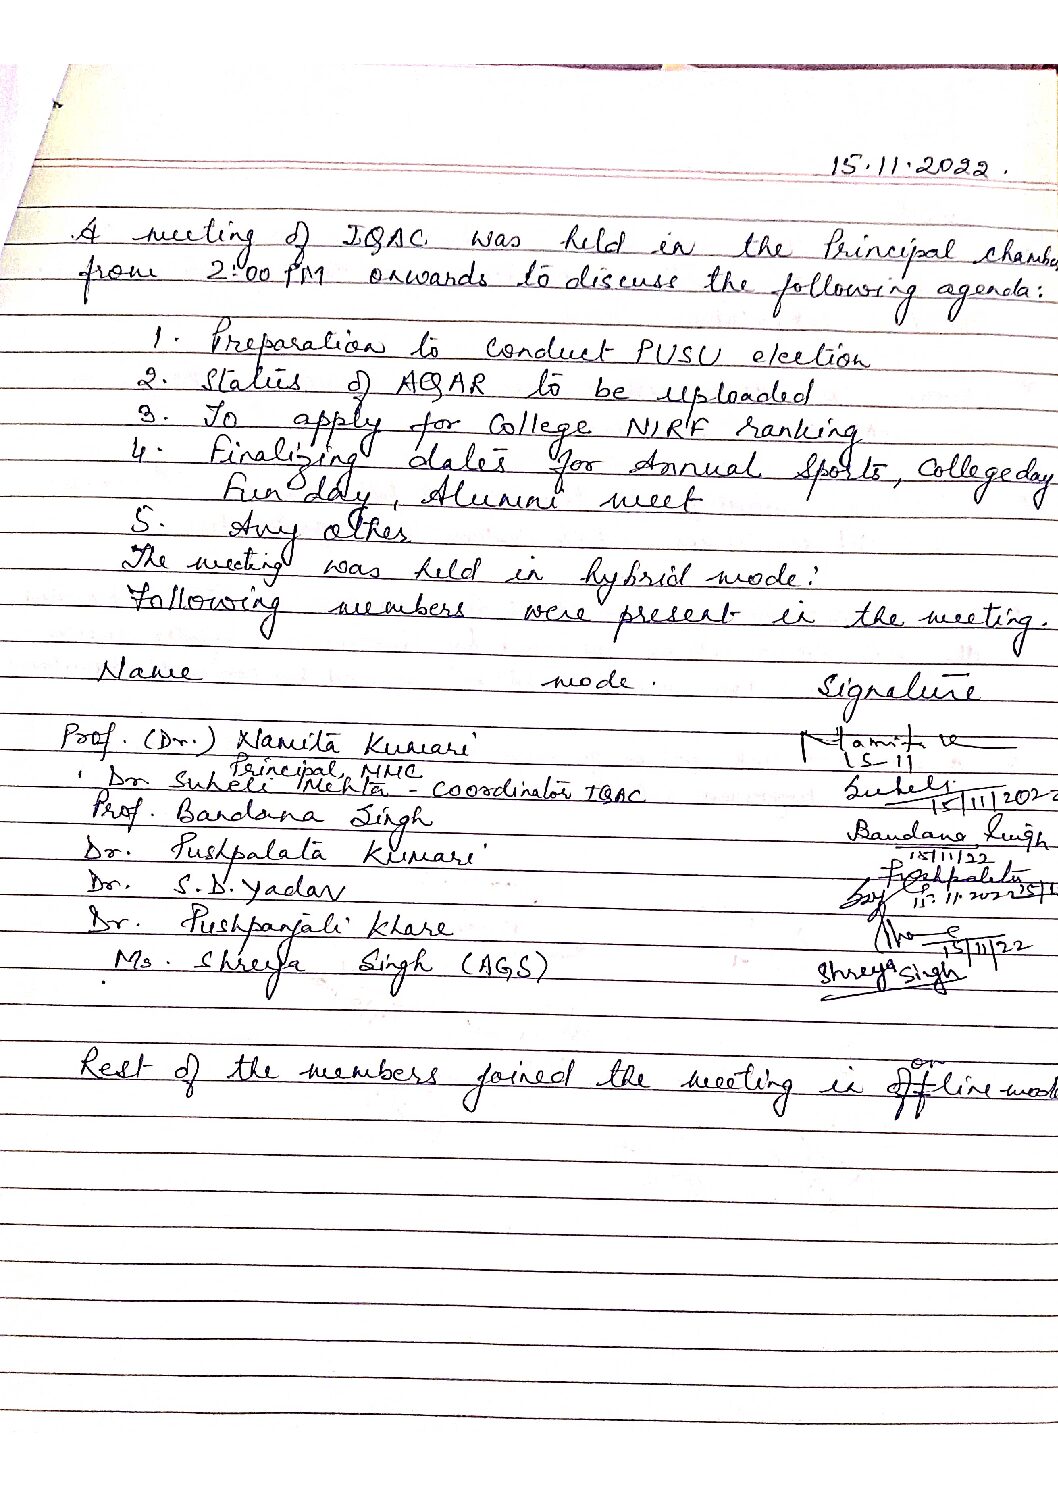 15.11.2022.
A meeting of IQAC was held in the Principal chamber
from 2:00 PM onwards to discuss the following agenda:
1. Preparation to conduct PUSU election
2. Status of AQAR to be uploaded
3. To apply for College NIRF ranking
4. Finalizing dates for Annual Sports, College day
Fun day, Alumni meet
5. Any other
The meeting was held in hybrid mode:
Following members were present in the meeting.
Name mode. Signature
Prof. (Dr.) Namita Kumari Namita
Principal, MMC 15-11
Dr. Suheli Mehta - Coordinator IQAC Suheli
15/11/2022
Prof. Bandana Singh Bandana Singh
15/11/22
Dr. Pushpalata Kumari Pushpalata
15.11.2022
Dr. S.D. Yadav
Dr. Pushpanjali Khare
15/11/22
Ms. Shreya Singh (AGS) Shreya Singh
on
Rest of the members joined the meeting in offline mode